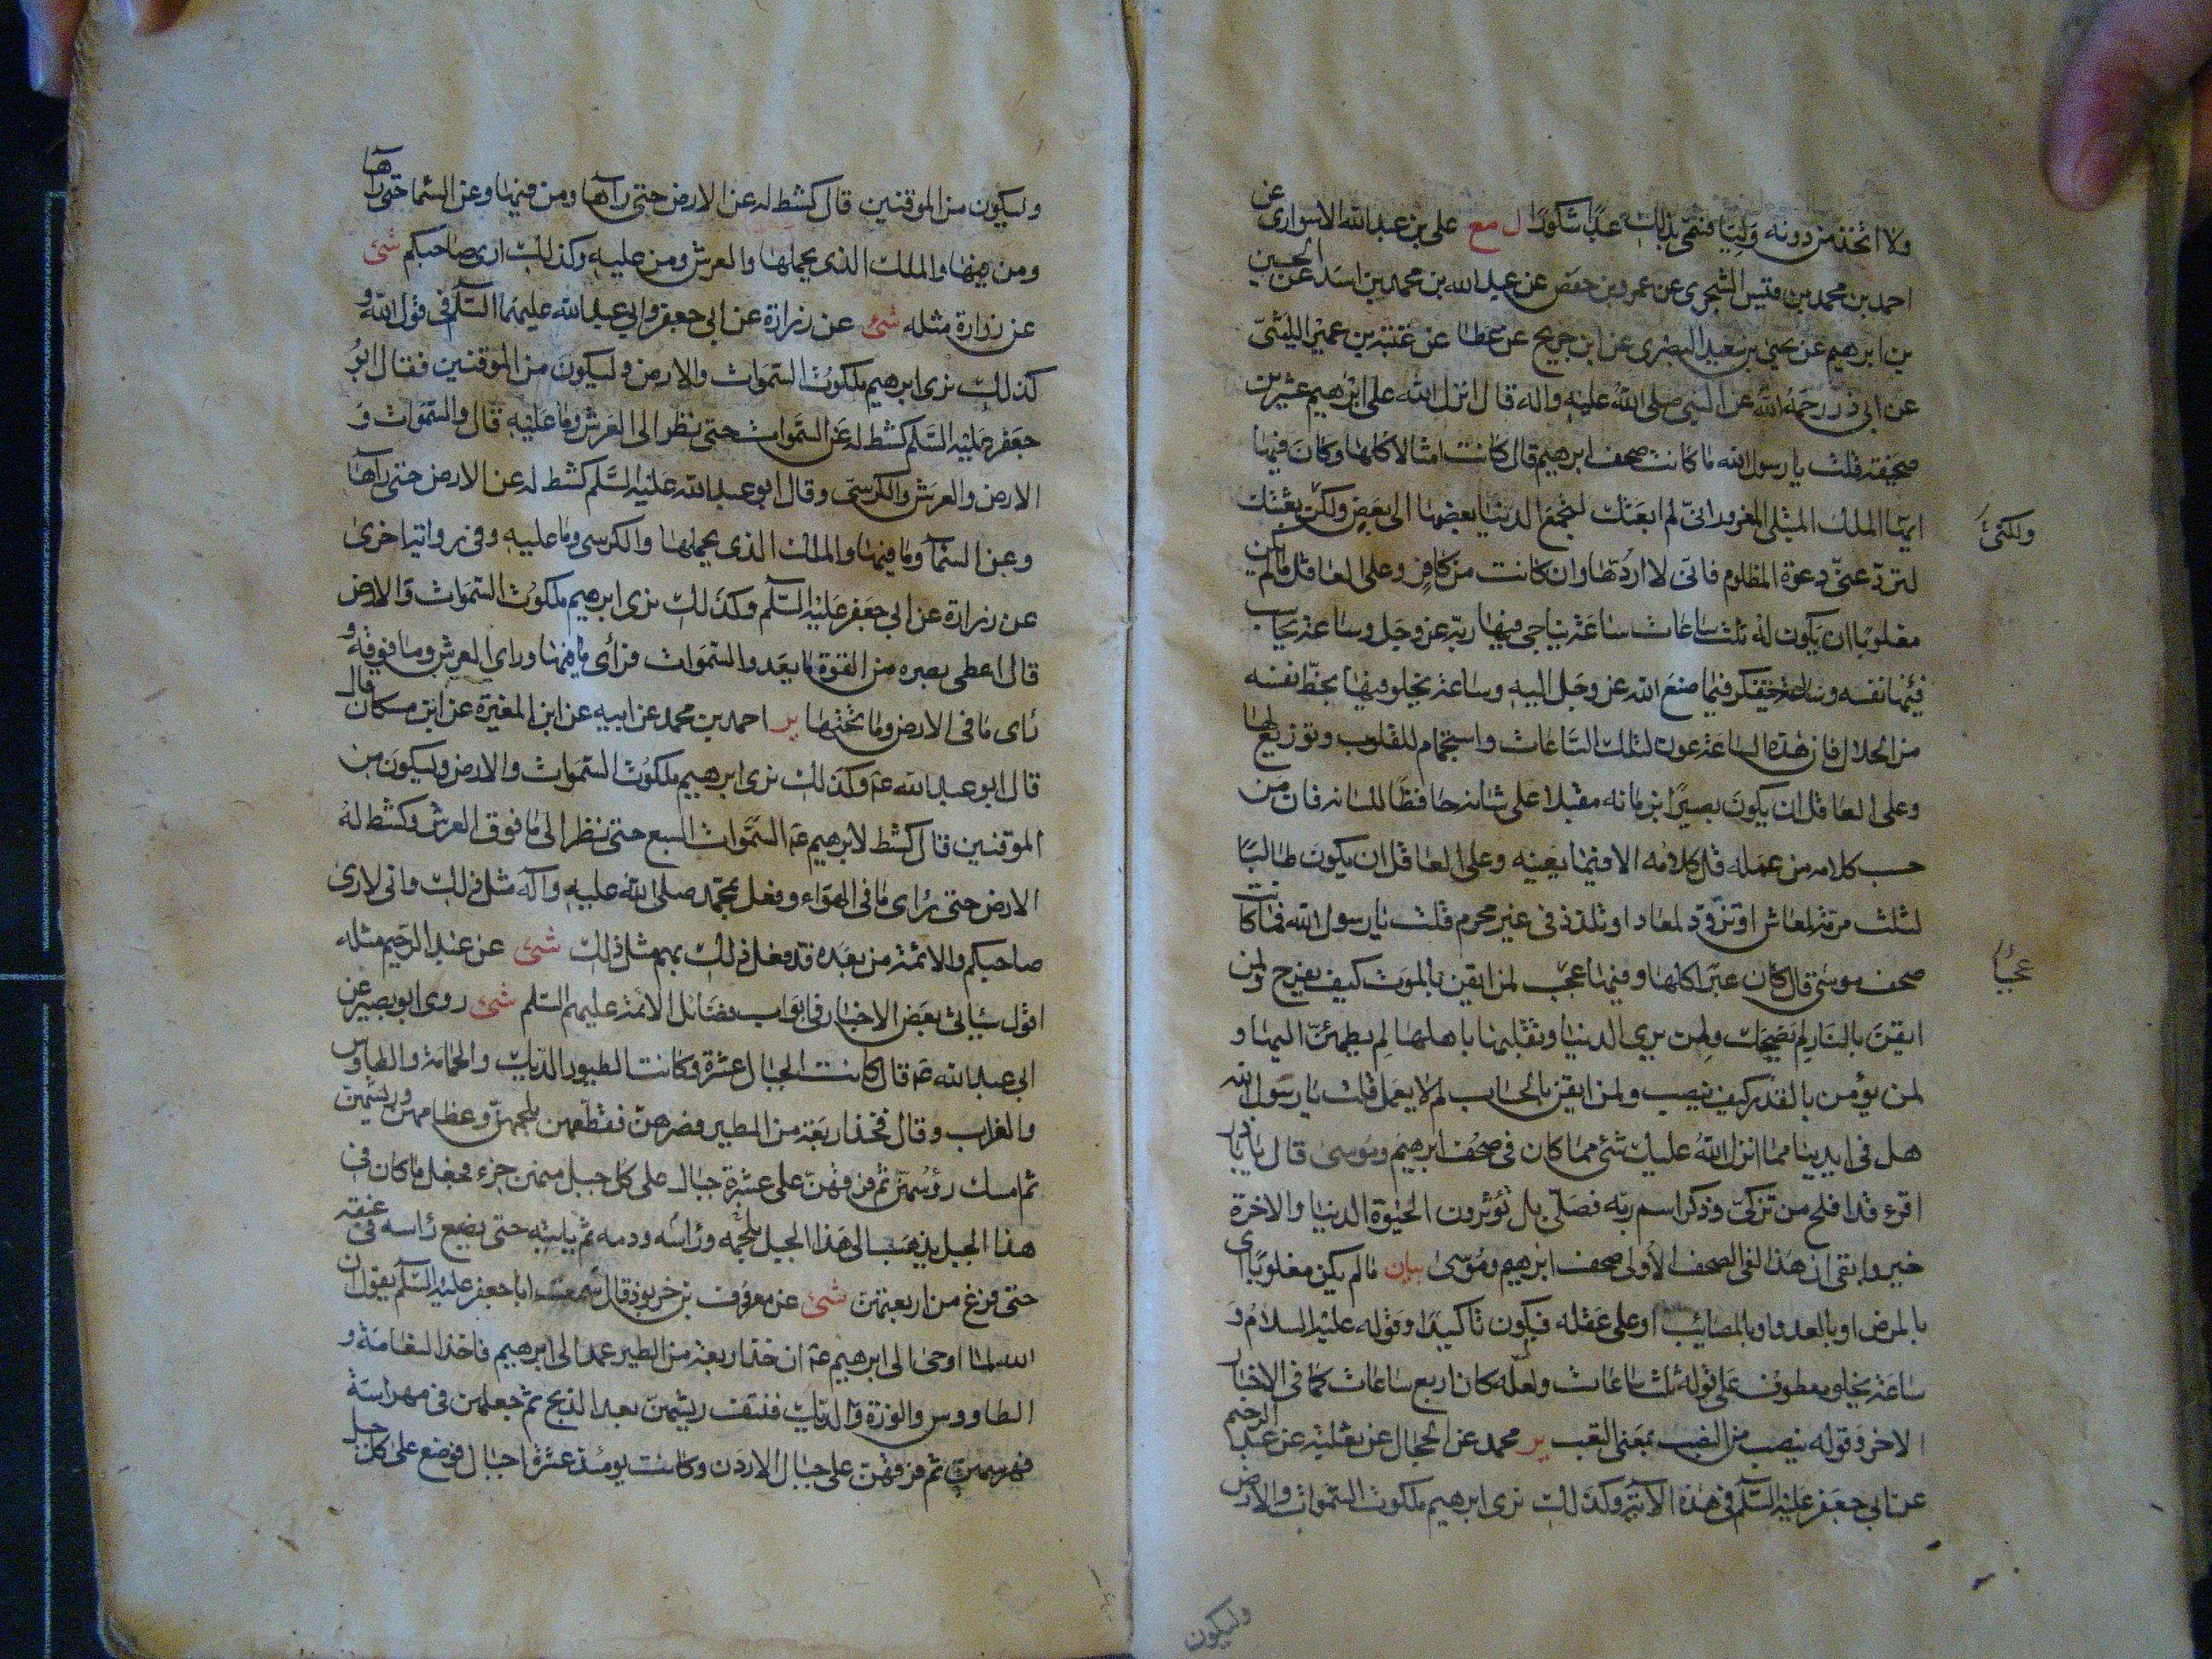 ولا اتخذ من دونه وليا فسمي بذلك عبدا شكورا ل مع علي بن عبد الله الاسواري عن
احمد بن محمد بن قيس الشجري عن عمرو بن حفص عن عبد الله بن محمد بن اسد عن الحسين
بن ابرهيم عن يحيى بن سعيد البصري عن ابن جريح عن عطا عن عتبة بن عمير الليثي
عن ابي ذر رحمه الله عن النبي صلى الله عليه واله قال انزل الله على ابرهيم عشرين
صحيفة قلت يا رسول الله ما كانت صحف ابرهيم قال كانت امثالا كلها وكان فيها
ايها الملك المبتلى المغرور اني لم ابعثك لتجمع الدنيا بعضها الى بعض ولكن بعثتك
ولكني
لترد عني دعوة المظلوم فاني لا اردها وان كانت من كافر وعلى العاقل ما لم يكن
مغلوبا ان يكون له ثلث ساعات ساعة يناجي فيها ربه عز وجل وساعة يحاسب
فيها نفسه وساعة يتفكر فيما صنع الله عز وجل اليه وساعة يخلو فيها بحظ نفسه
من الحلال فان هذه الساعة عون لتلك الساعات واستجمام للقلوب وتوزيع لها
وعلى العاقل ان يكون بصيرا بزمانه مقبلا على شانه حافظا للسانه فان من
حسب كلامه من عمله قل كلامه الا فيما يعنيه وعلى العاقل ان يكون طالبا
لثلث مرمة لمعاش او تزود لمعاد او تلذذ في غير محرم قلت يا رسول الله فما كانت
صحف موسى قال كان عبرا كلها وفيها عجب لمن ايقن بالموت كيف يفرح ولمن
عجبا
ايقن بالنار لم يضحك ولمن يرى الدنيا وتقلبها باهلها لم يطمئن اليها و
لمن يؤمن بالقدر كيف ينصب ولمن ايقن بالحساب لم لا يعمل قلت يا رسول الله
هل في ايدينا مما انزل الله عليك شئ مما كان في صحف ابرهيم وموسى قال يا باذر
اقرء قد افلح من تزكى وذكر اسم ربه فصلى بل تؤثرون الحيوة الدنيا والاخرة
خير وابقى ان هذا لفي الصحف الاولى صحف ابرهيم وموسى بيان ما لم يكن مغلوبا اي
بالمرض او بالعدو او بالمصائب او على عقله فيكون تاكيدا وقوله عليه السلام و
ساعة يخلو معطوف على قوله ثلث ساعات ولعله كان اربع ساعات كما في الاخبار
الاخر وقوله ينصب من النصب بمعنى التعب ير محمد عن الحجال عن ثعلبة عن عبد الرحيم
عن ابي جعفر عليه السلم في هذه الاية وكذلك نري ابرهيم ملكوت السموات والارض
وليكون
وليكون من الموقنين قال كشط له عن الارض حتى رآها ومن فيها وعن السما حتى رآها
ومن فيها والملك الذي يحملها والعرش ومن عليه وكذلك ارى صاحبكم شئ
عن زرارة مثله شئ عن زرارة عن ابي جعفر وابي عبد الله عليهما السلم في قول الله و
كذلك نري ابرهيم ملكوت السموات والارض وليكون من الموقنين فقال ابو
جعفر عليه السلم كشط له عن السموات حتى نظر الى العرش وما عليه قال والسموات و
الارض والعرش والكرسي وقال ابو عبد الله عليه السلم كشط له عن الارض حتى رآها
وعن السماء وما فيها والملك الذي يحملها والكرسي وما عليه وفي رواية اخرى
عن زرارة عن ابي جعفر عليه السلم وكذلك نري ابرهيم ملكوت السموات والارض
قال اعطى بصره من القوة ما يعدو السموات فرأى ما فيها وراى العرش وما فوقه و
راى ما في الارض وما تحتها ير احمد بن محمد عن ابيه عن ابن المغيرة عن ابن مسكان قال
قال ابو عبد الله عه وكذلك نري ابرهيم ملكوت السموات والارض وليكون من
الموقنين قال كشط لابرهيم عه السموات السبع حتى نظر الى ما فوق العرش وكشط له
الارض حتى رأى ما في الهواء وفعل بمحمد صلى الله عليه وآله مثل ذلك واني لارى
صاحبكم والائمة من بعده قد فعل ذلك بهم مثل ذلك شئ عن عبد الرحيم مثله
اقول سياتي بعض الاخبار في ابواب فضائل الائمة عليهم السلم شئ روى ابو بصير عن
ابي عبد الله عه قال كانت الجبال عشرة وكانت الطيور الديك والحمامة والطاوس
والغراب وقال فخذ اربعة من الطير فصرهن فقطعهن بلحمهن وعظامهن وريشهن
ثم امسك رؤسهن ثم فرقهن على عشرة جبال على كل جبل منهن جزء فجعل ما كان في
هذا الجبل يذهب الى هذا الجبل بلحمه ورأسه ودمه ثم ياتيه حتى يضع رأسه في عنقه
حتى فرغ من اربعتهن شئ عن معروف بن خربوذ قال سمعت ابا جعفر عليه السلم يقول ان
الله لما اوحى الى ابرهيم عه ان خذ اربعة من الطير عمد الى ابرهيم فاخذ النعامة و
الطاووس والوزة والديك فنتف ريشهن بعد الذبح ثم جعلهن في مهراسة
فهرسهن ثم فرقهن على جبال الاردن وكانت يومئذ عشرة اجبال فوضع على كل جبل